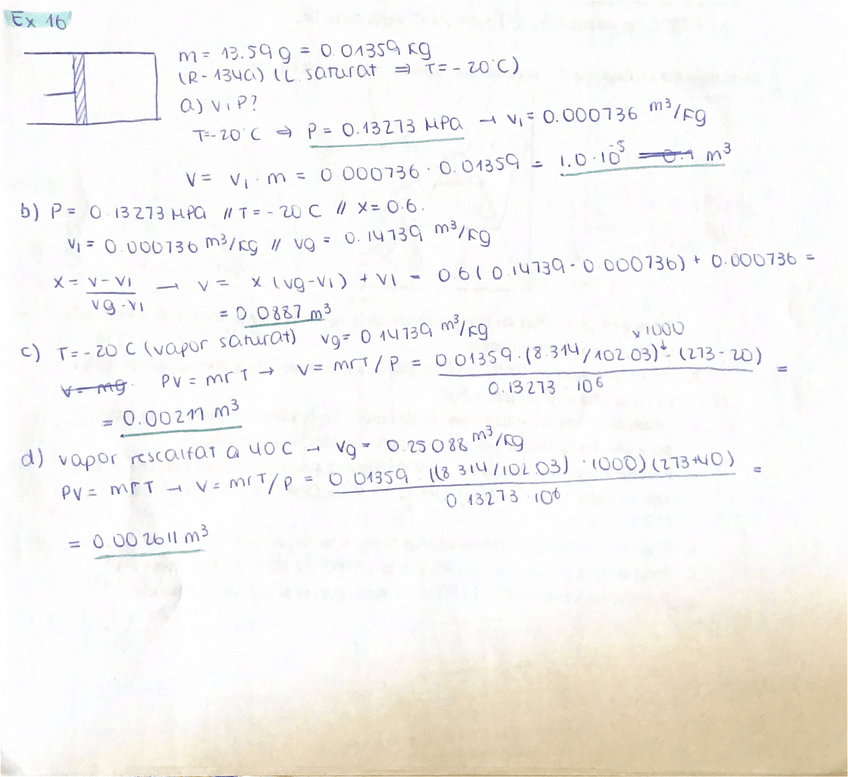 Ex 16
m = 13.59 g = 0.01359 kg
(R-134a) (L. saturat ⇒ T=-20°C)
a) V i P?
T=-20°C ⇒ P = 0.13273 MPa → v₁ = 0.000736 m³/kg
V = v₁ · m = 0.000736 · 0.01359 = 1.0·10⁻⁵ m³
b) P = 0.13273 MPa // T=-20°C // x=0.6.
v₁ = 0.000736 m³/kg // vg = 0.14739 m³/kg
x = (v-v₁)/(vg-v₁) → v = x(vg-v₁) + v₁ = 0.6(0.14739-0.000736) + 0.000736 =
= 0.0887 m³
c) T=-20°C (vapor saturat) vg= 0.14739 m³/kg
x1000
v=mg. PV = mrT → V = mrT/P = 0.01359·(8.314/102.03)·(273-20) / 0.13273·10⁶ =
= 0.00211 m³
d) vapor rescalfat a 40°C → vg= 0.25088 m³/kg
PV = mrT → V = mrT/P = 0.01359·((8.314/102.03)·1000)(273+40) / 0.13273·10⁶ =
= 0.002611 m³